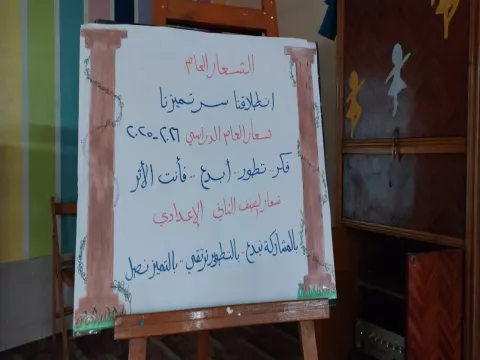 الشعار العام
انطلاقنا سر تميزنا
شعار العام الدراسي ٢٠٢٦-٢٠٢٥
فكر.. تطور.. أبدع.. فأنت الأثر
شعار الصف الثاني الإعدادي
بالمشاركة نبدع - بالتطور نرتقي - بالتميز نصل